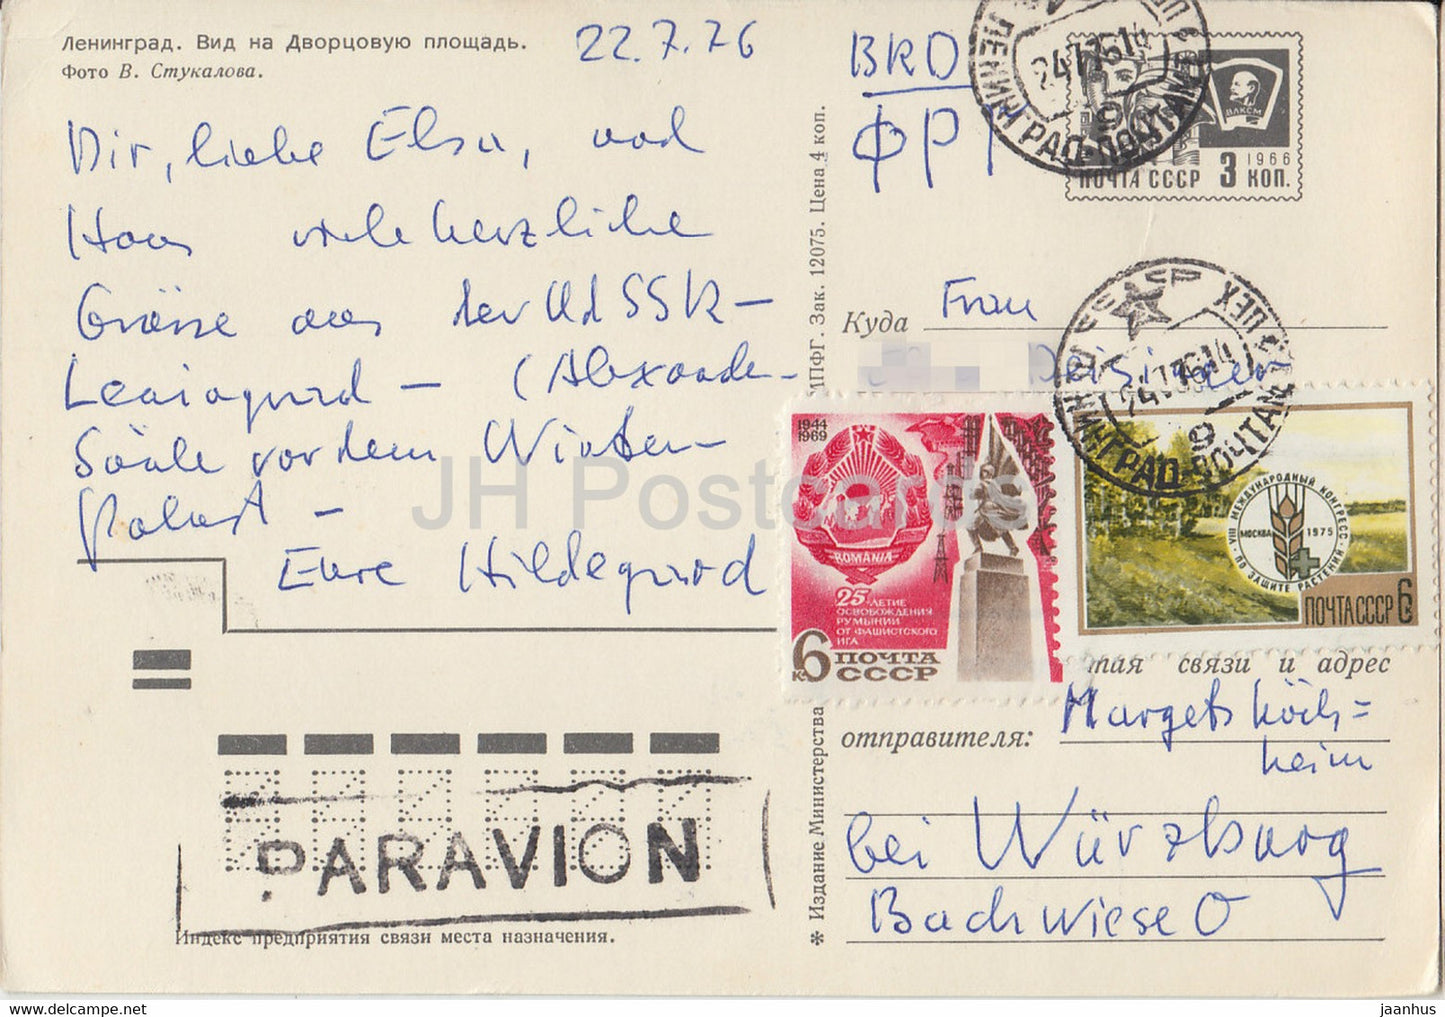 Ленинград. Вид на Дворцовую площадь.
Фото В. Стукалова.
22.7.76
Dir, liebe Elsu, und
Hans viele herzliche
Grüsse aus der UdSSR –
Leningrad – (Alexander-
Säule vor dem Winter-
palast –
Eure Hildegard
PAR AVION
Индекс предприятия связи места назначения.
* Издание Министерства
МПФГ. Зак. 12075. Цена 4 коп.
BRD
ФРГ
ЛЕНИНГРАД-ПОЧТАМТ
24.7.76.14
9
ВЛКСМ
1966
ПОЧТА СССР 3 КОП.
Куда Frau
СССР
ЛЕНИНГРАД-ПОЧТАМТ
24.7.76.14
9
1944
1969
ROMÂNIA
25-ЛЕТИЕ
ОСВОБОЖДЕНИЯ
РУМЫНИИ
ОТ ФАШИСТСКОГО
ИГА
6 К. ПОЧТА
СССР
VIII МЕЖДУНАРОДНЫЙ КОНГРЕСС
ПО ЗАЩИТЕ РАСТЕНИЙ
МОСКВА 1975
ПОЧТА СССР 6 К.
связи и адрес
отправителя:
Margetshöch=
heim
bei Würzburg
Bachwiese 0
JH Postcards
jaanhus © HipPostcard